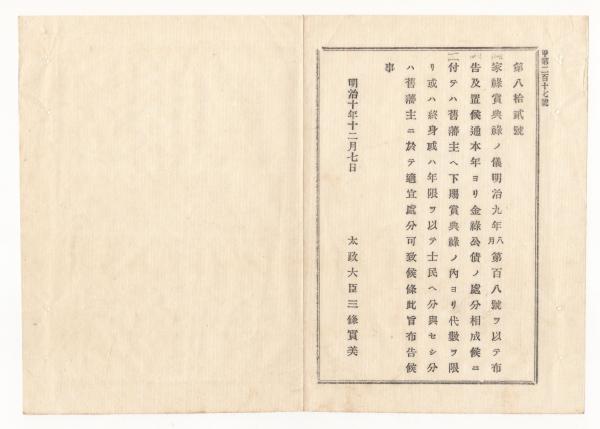 甲第二百十七號
第八拾貳號
家祿賞典祿ノ儀明治九年八月第百八號ヲ以テ布
告及置候通本年ヨリ金祿公債ノ處分相成候ニ
付テハ舊藩主ヘ下賜賞典祿ノ內ヨリ代數ヲ限
リ或ハ終身或ハ年限ヲ以テ士民ヘ分與セシ分
ハ舊藩主ニ於テ適宜處分可致候條此旨布告候
事
明治十年十二月七日
太政大臣三條實美